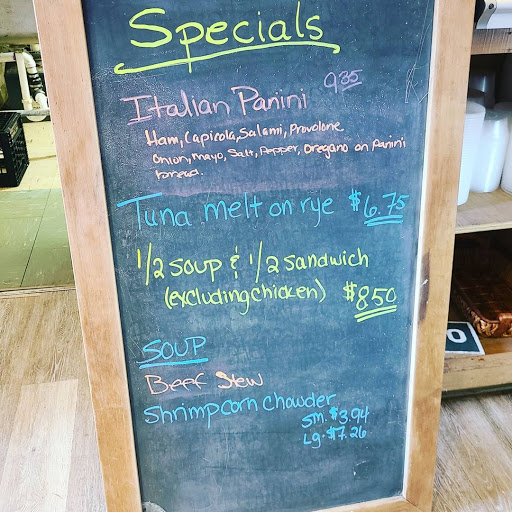 Specials
Italian Panini 9.35
Ham, Capicola, Salami, Provolone
Onion, mayo, Salt, Pepper, Oregano on panini
bread.
Tuna melt on rye $6.75
1/2 soup & 1/2 sandwich
(excluding chicken) $8.50
SOUP
Beef Stew
Shrimp corn chowder
Sm. $3.94
Lg. $7.26